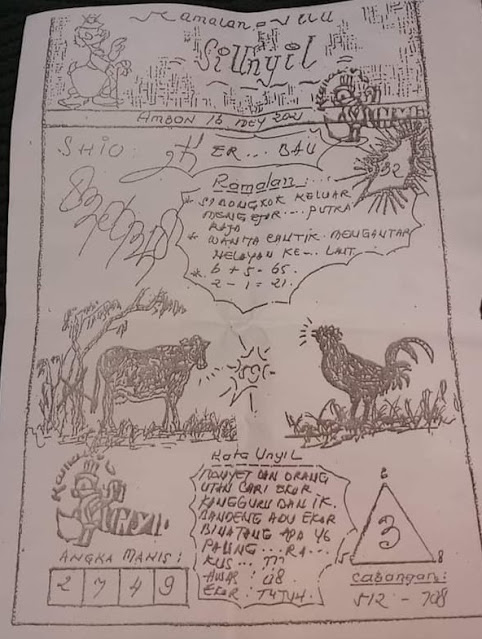 Ramalan - Jitu
Si Unyil
AMBON 16 MEY 2021
SHIO:
ER... BAU
32
Ramalan:...
* SI BONGKOK KELUAR
MENGEJAR... PUTRA
RAJA
* WANITA CANTIK MENGANTAR
NELAYAN KE... LAUT.
* 6 + 5 = 65.
2 - 1 = 21.
Kata Unyil
MONYET DAN ORANG
UTAN CARI EKOR
KANGGURU DAN IK.
BANDENG ADU EKOR
BINATANG APA YG
PALING...RA...
KUS... ???
AWAS: 08.
EKOR: TUJUH.
ANGKA MANIS:
2 7 4 9
6
3
15 8
Cabangan:
512 - 708